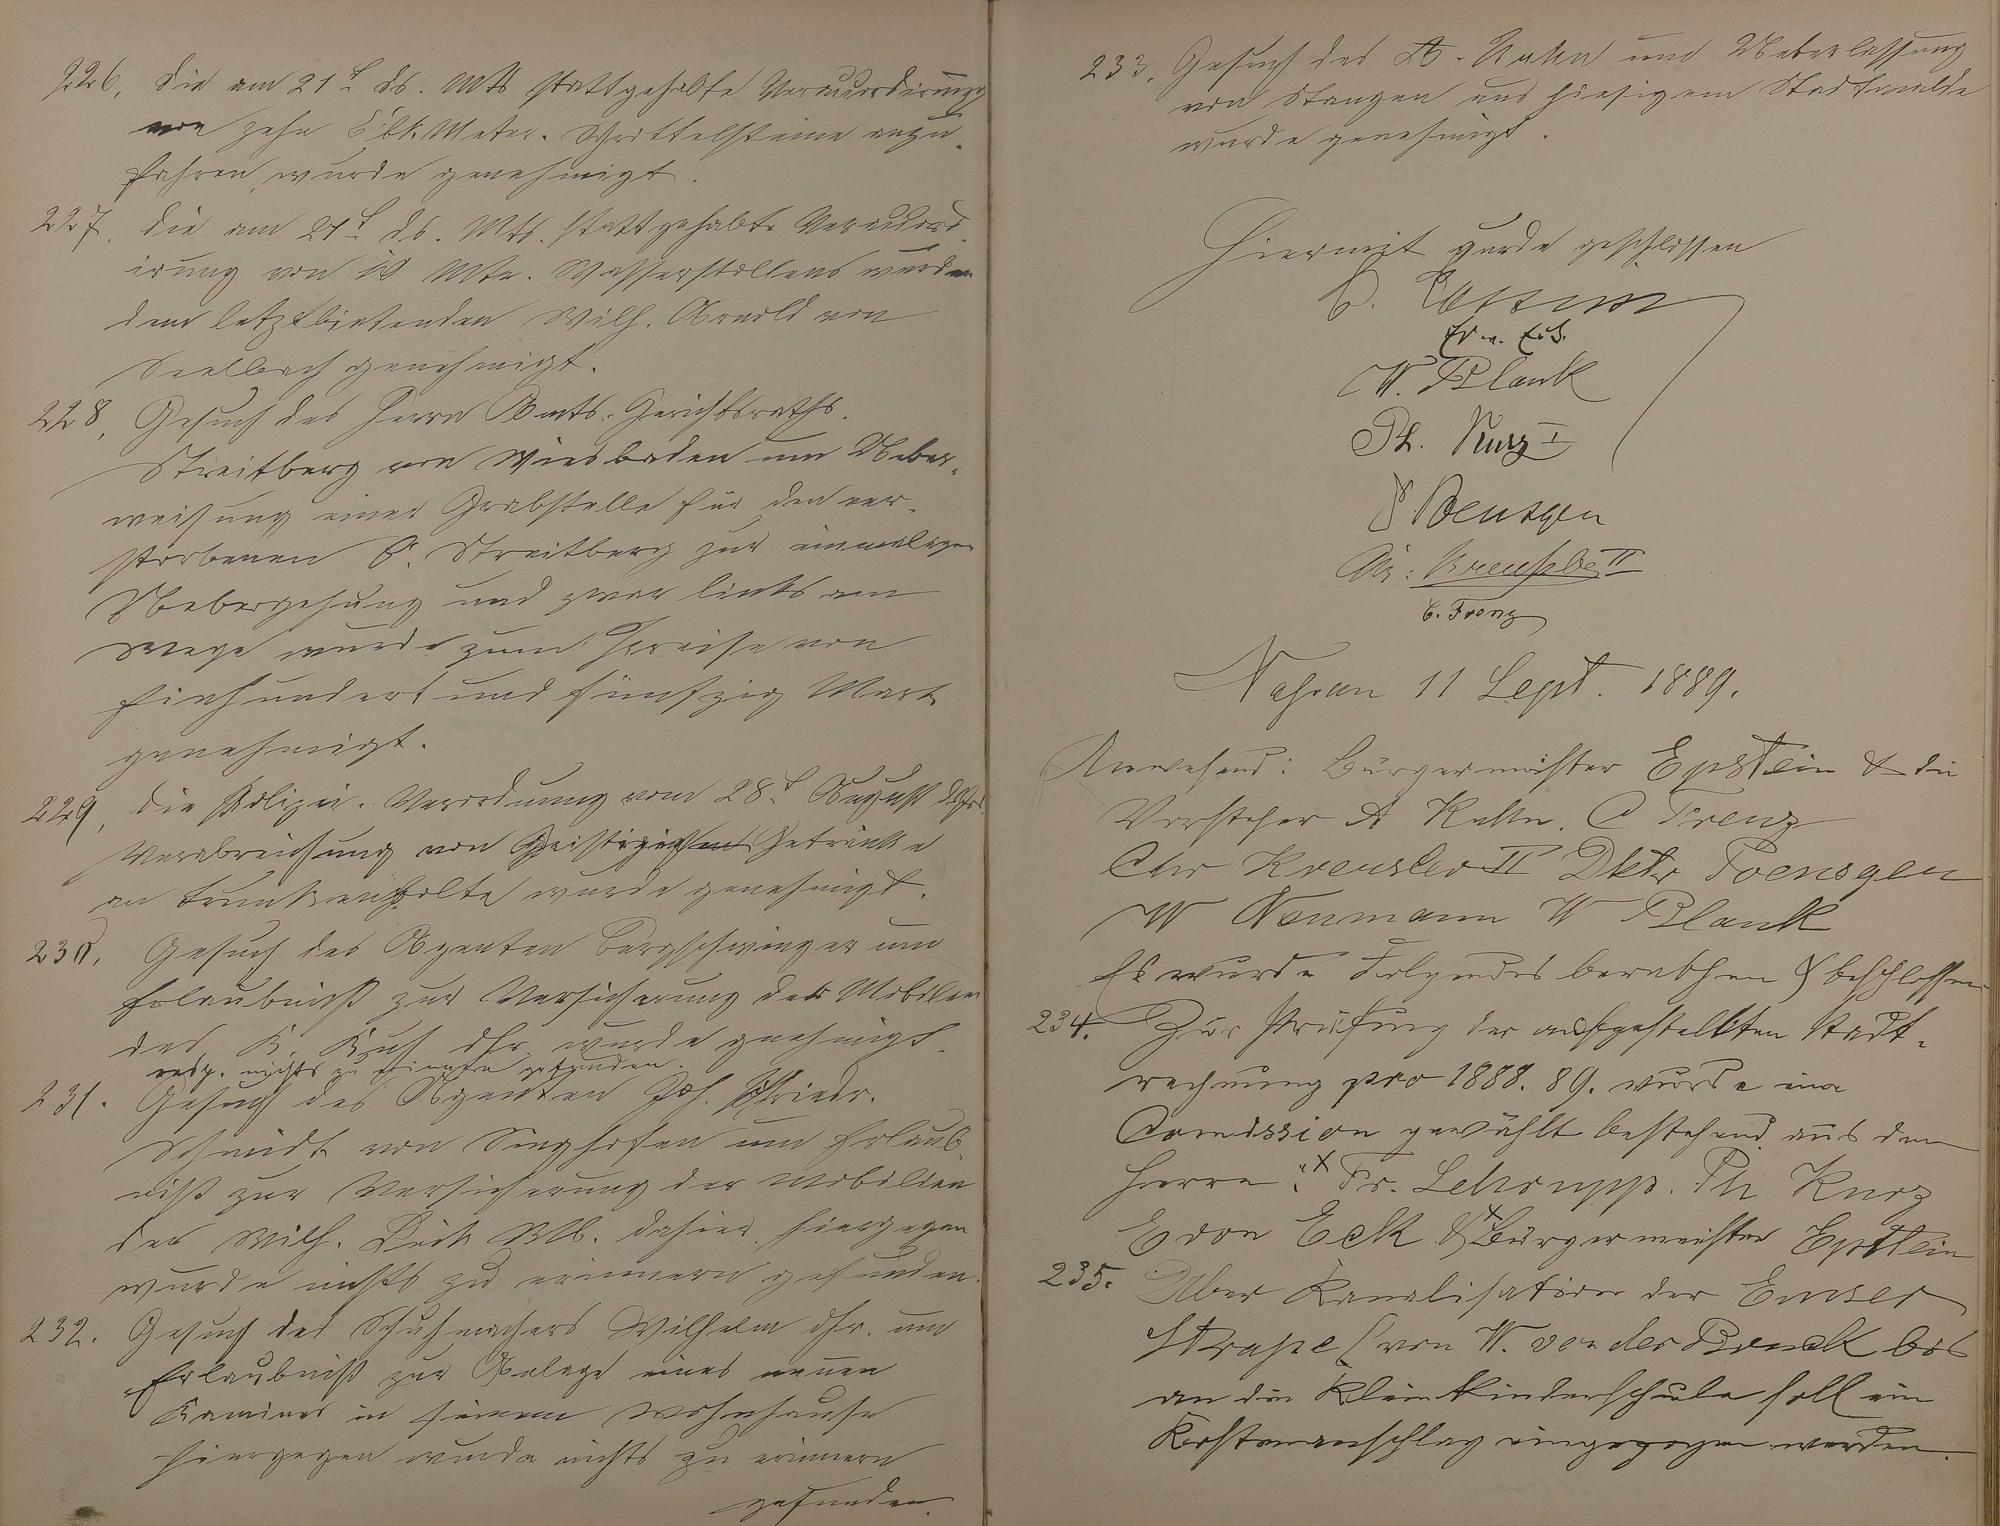 226, Die am 21t ds. Mts stattgehabte Veraccordirung
von zehn Cbk. Meter. anzu-
fahren, wurde genehmigt.
227, Die am 21t ds. Mts. stattgehabte Veraccord-
irung von 10 Mtr. Wasserstollens wurde
dem letztbietenden Wilh. Arnold von
Seelbach genehmigt.
228, Gesuch des Herrn Amts-Gerichtsraths.
Streitberg von Wiesbaden um Ueber-
weisung einer Grabstelle für den ver-
storbenen C. Streitberg zur einmaligen
Uebergehung und zwar links am
Wege wurde zum Preise von
Einhundert und fünfzig Mark
genehmigt.
229, Die Polizei-Verordnung vom 28t August ds Jrs.
Verabreichung von Geistigen Getränke
an Trunkenbolte wurde genehmigt.
230, Gesuch des Agenten Bergschwinger um
Erlaubniß zur Versicherung der Mobilien
des K. wurde genehmigt.
resp. nichts zu erinnern gefunden.
231. Gesuch des Agenten Joh. Friedr.
Schmidt von Singhofen um Erlaub-
niß zur Versicherung der Mobilien
des Wilh. dahier, hiergegen
wurde nichts zu erinnern gefunden.
232. Gesuch des Schuhmachers Wilhelm um
Erlaubniß zur Anlage eines neuen
Kamines in seinem Wohnhause
hiergegen wurde nichts zu erinnern
gefunden.
233, Gesuch des A. Kahn um Ueberlassung
von Stangen aus hiesigem Stadtwalde
wurde genehmigt.
Hiermit wurde geschlossen
W. Blank
Ph. Kurz I
Poensgen
Chr. Kreusler II
C. Trenz
Nassau 11 Sept. 1889.
Anwesend: Bürgermeister Epstein & die
Vorsteher A Kahn. C Trenz
Chr Kreusler II Dktr Poensgen
W Neumann W Blank
Es wurde Folgendes berathen & beschlossen
234. Zur Prüfung der aufgestellten Stadt-
rechnung pro 1888. 89. wurde eine
Comission gewählt bestehend aus den
Herrn: Fr. Schrupp. Ph Kurz
Edon Eck & Bürgermeister Epstein
235. Über Kanalisation der Emser
Straße (von W. von der Bruck bis
an die Kleinkinderschule soll ein
Kostenanschlag eingezogen werden.